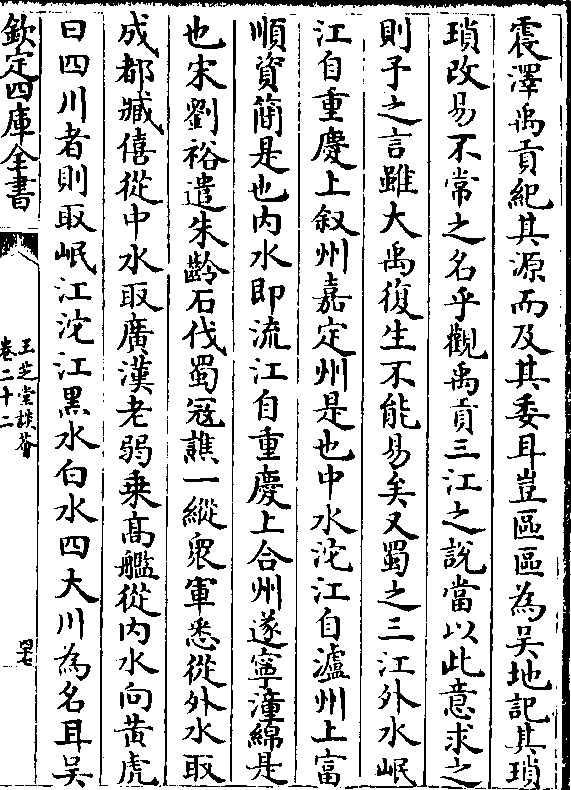 震澤禹貢紀其源而及其委耳豈區區為吴地記其瑣
瑣改易不常之名乎觀禹貢三江之說當以此意求之
則予之言雖大禹復生不能易矣又蜀之三江外水岷
江自重慶上叙州嘉定州是也中水沱江自瀘州上富
順資簡是也内水即流江自重慶上合州遂寧潼綿是
也宋劉裕遣朱齡石伐蜀冦譙一縱衆軍悉從外水取
成都臧僖從中水取廣漢老弱乗高艦從内水向黄虎
曰四川者則取岷江沱江黒水白水四大川為名耳吴
欽定四庫全書
玉芝堂談薈
卷二十二